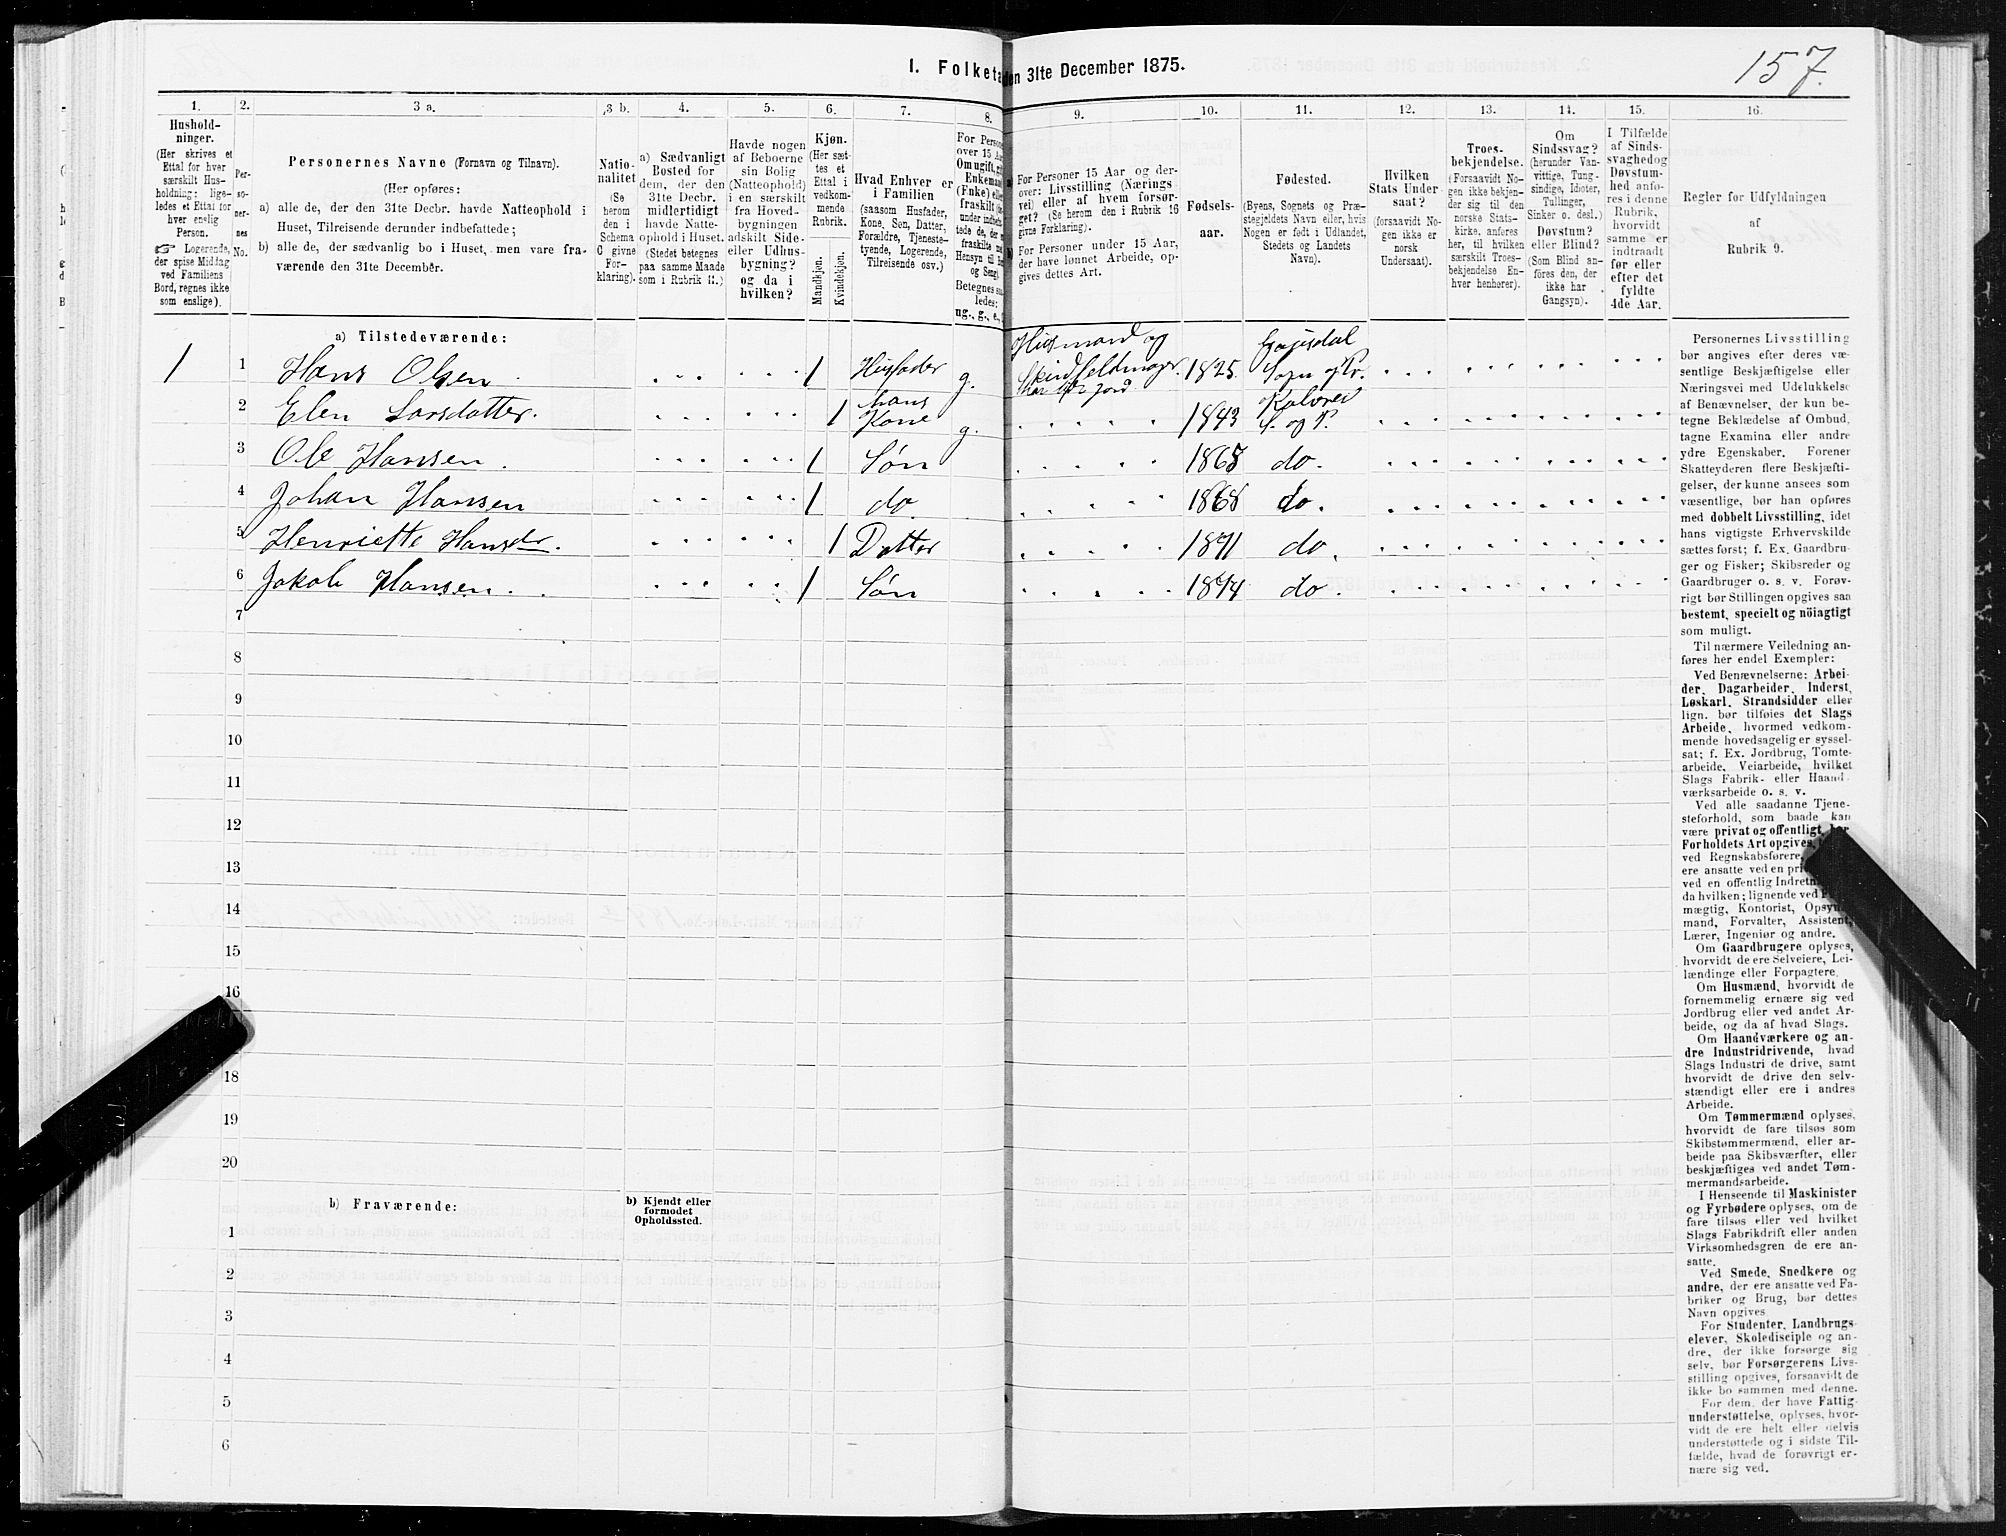 I. Folketæ
den 31te December 1875.
157.
1. 2. 3 a. 3 b. 4. 5. 6. 7. 8. 9. 10. 11. 12. 13. 14. 15. 16.
Hushold-
ninger.
(Her skrives et
Ettal for hver
særskilt Hus-
holdning; lige-
ledes et Ettal for
hver enslig
Person.
☞ Logerende,
der spise Middag
ved Familiens
Bord, regnes ikke
som enslige).
Per-
so-
ner-
nes
No.
Personernes Navne (Fornavn og Tilnavn).
(Her opføres:
a) alle de, der den 31te Decbr. havde Natteophold i
Huset, Tilreisende derunder indbefattede;
b) alle de, der sædvanlig bo i Huset, men vare fra-
værende den 31te December.
Natio-
nalitet
(Se
herom
den i
Schema
C givne
For-
klaring).
a) Sædvanligt
Bosted for
dem, der den
31te Decbr.
midlertidigt
havde Natte-
ophold i Huset.
(Stedet betegnes
paa samme Maade
som i Rubrik 11.)
Havde nogen
af Beboerne
sin Bolig
(Natteophold)
i en særskilt
fra Hoved-
bygningen
adskilt Side-
eller Udhus-
bygning?
og da i
hvilken?
Kjøn.
(Her sæt-
tes et
Ettal i
vedkom-
mende
Rubrik.
Mandkjøn.
Kvindekjøn.
Hvad Enhver er
i Familien
(saasom Husfader,
Kone, Søn, Datter,
Forældre, Tjeneste-
tyende, Logerende,
Tilreisende osv.)
For Perso
over 15 Aa
Om ugift, gi
Enkeman
(Fnke) eller
fraskilt
under indbefa
tede de, der
fraskilte
Hensyn til Bo
og Seng).
Betegnes saa
ledes:
ug., g., e.,
For Personer 15 Aar og der-
over: Livsstilling (Nærings
vei) eller af hvem forsør-
get? (Se herom den i Rubrik 16
givne Forklaring).
For Personer under 15 Aar,
der have lønnet Arbeide, op-
gives dettes Art.
Fødsels-
aar.
Fødested.
(Byens, Sognets og Præ-
stegjeldets Navn eller, hvis
Nogen er født i Udlandet,
Stedets og Landets
Navn).
Hvilken
Stats Under
saat?
(forsaavidt No-
gen ikke er
norsk
Undersaat).
Troes-
bekjendelse.
(Forsaavidt No-
gen ikke bekjen-
der sig til den
norske Stats-
kirke, anføres
her, til hvilken
særskilt Troes-
bekjendelse En-
hver henhører).
Om
Sindssvag?
(herunder Van-
vittige, Tung-
sindige, Idioter,
Tullinger,
Sinker o. desl.)
Døvstum?
eller Blind?
(Som Blind an-
føres den, der
ikke har
Gangsyn).
I Tilfælde
af Sinds-
svaghedog
Døvstum-
hed anfø-
res i denne
Rubrik,
hvorvidt
samme er
indtraadt
før eller
efter det
fyldte
4de Aar.
Regler for Udfyldningen
af
Rubrik 9.
a) Tilstedeværende:
1 1 Hans Olsen 1 Husfader g. Husmand og 1825 Gjesdal
Sogn og Pr.
2 Elen Larsdatter. 1 hans
Kone g. 1843 Kalvrei
S. og P.
3 Ole Hansen. 1 Søn 1865 do.
4 Johan Hansen 1 do. 1868 do.
5 Henriette Hansdr. 1 Datter 1871 do.
6 Jakob Hansen. 1 Søn 1874 do.
7
8
9
10
11
12
13
14
15
16
18
19
20
b) Fraværende:
b) Kjendt eller
formodet
Opholdssted.
1
2
3
4
5
6
Personernes Livsstilling
bør angives efter deres væ-
sentlige Beskjæftigelse eller
Næringsvei med Udelukkelse
af Benævnelser, der kun be-
tegne Beklædelse af Ombud,
tagne Examina eller andre
ydre Egenskaber. Forener
Skatteyderen flere Beskjæfti-
gelser, der kunne ansees som
væsentlige, bør han opføres
med dobbelt Livsstilling, idet
hans vigtigste Erhvervskilde
sættes først; f. Ex. Gaardbru-
ger og Fisker; Skibsreder og
Gaardbruger o. s. v. Forøv-
rigt bør Stillingen opgives saa
bestemt, specielt og nöiagtigt
som muligt.
Til nærmere Veiledning an-
føres her endel Exempler:
Ved Benævnelserne: Arbei-
der, Dagarbeider, Inderst,
Løskarl, Strandsidder eller
lign. bør tilføies det Slags
Arbeide, hvormed vedkom-
mende hovedsagelig er syssel-
sat; f. Ex. Jordbrug, Tomte-
arbeide, Veiarbeide, hvilket
Slags Fabrik- eller Haand-
værksarbeide o. s. v.
Ved alle saadanne Tjene-
steforhold, som baade kan
være privat og offentligt, bør
Forholdets Art opgives,
ved Regnskabsførere,
ere ansatte ved en pri
ved en offentlig Indretn
da hvilken; lignende ved
mægtig, Kontorist, Opsyns
mand, Forvalter, Assistent,
Lærer, Ingeniør og andre.
Om Gaardbrugere oplyses,
hvorvidt de ere Selveiere, Lei-
lændinge eller Forpagtere.
Om Husmænd, hvorvidt de
fornemmelig ernære sig ved
Jordbrug eller ved andet Ar-
beide, og da af hvad Slags.
Om Haandværkere og an-
dre Industridrivende, hvad
Slags Industri de drive, samt
hvorvidt de drive den selv-
stændigt eller ere i andres
Arbeide.
Om Tømmermænd oplyses,
hvorvidt de fare tilsøs som
Skibstømmermænd, eller ar-
beide paa Skibsværfter, eller
beskjæftiges ved andet Tøm-
mermandsarbeide.
I Henseende til Maskinister
og Fyrbødere oplyses, om de
fare tilsøs eller ved hvilket
Slags Fabrikdrift eller anden
Virksomhedsgren de ere an-
satte.
Ved Smede, Snedkere og
andre, der ere ansatte ved Fa-
briker og Brug, bør dettes
Navn opgives
For Studenter, Landbrugs-
elever, Skoledisciple og an-
dre, der ikke forsørge sig
selv, bør Forsørgerens Livs-
stilling opgives, forsaavidt de
ikke bo sammen med denne.
For dem, der have Fattig-
understøttelse, oplyses, hvor-
vidt de ere helt eller delvis
understøttede og i sidste Til-
fælde, hvad de forøvrigt er-
nære sig ved.